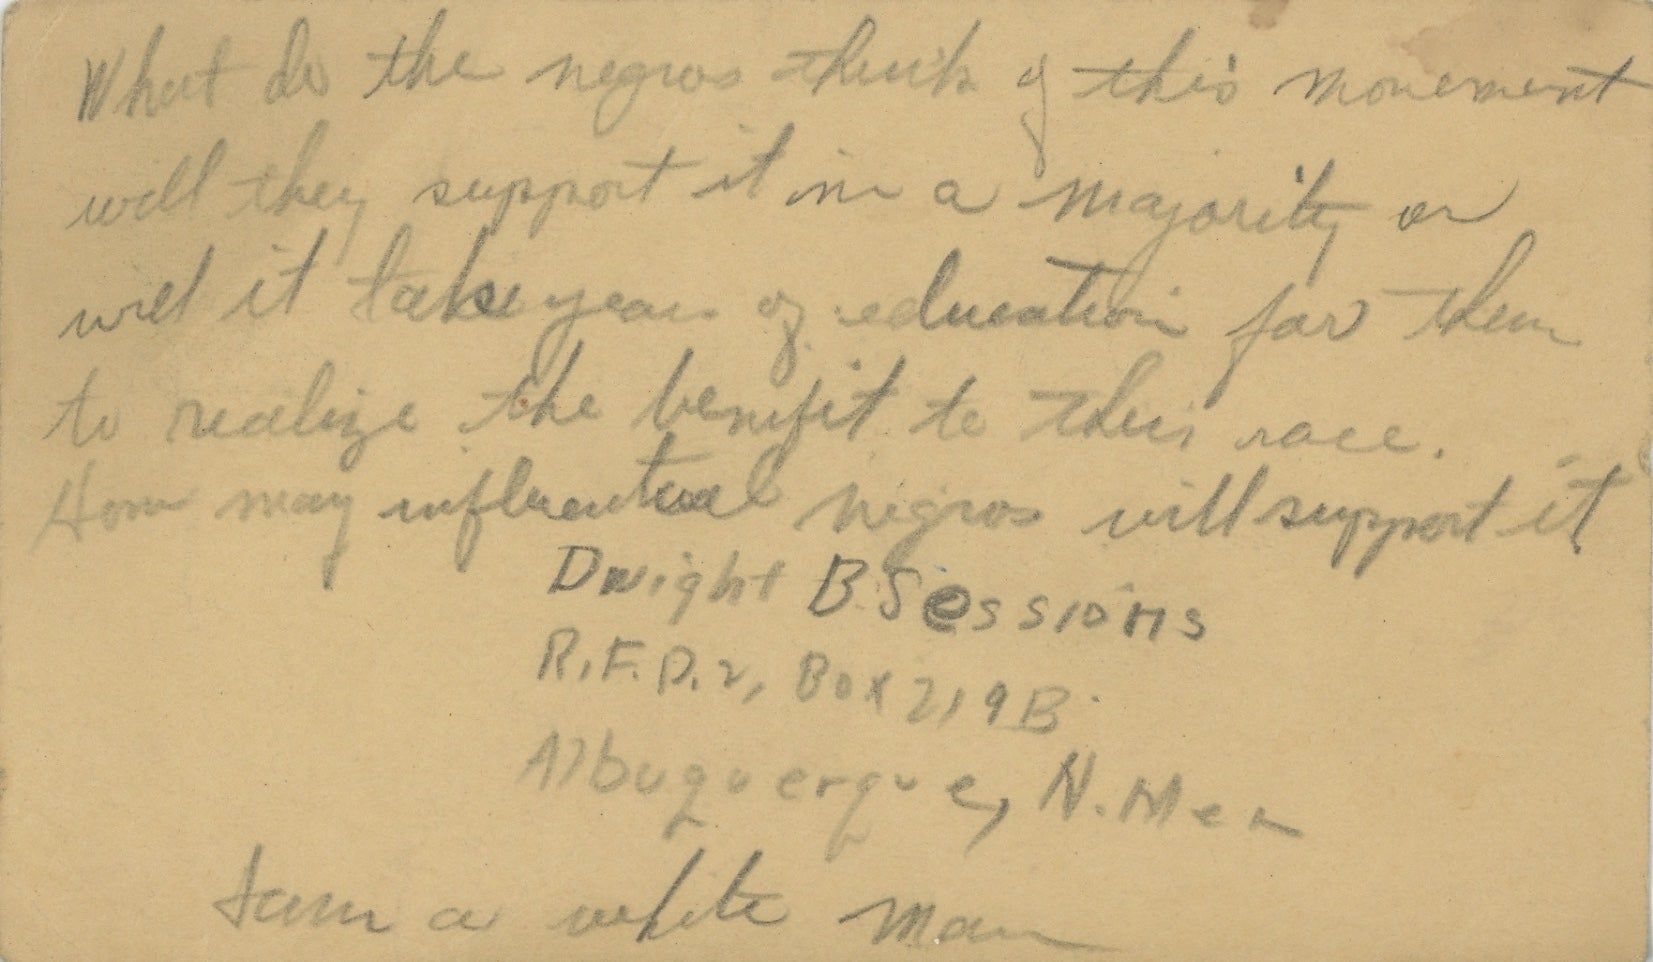 What do the negros think of this movement
will they support it in a majority or
will it take years of education for them
to realize the benifit to their race.
How may influential negros will support it
Dwight B. Sessions
R.F.D. 2, Box 219B
Albuquerque, N. Mex
I am a white man